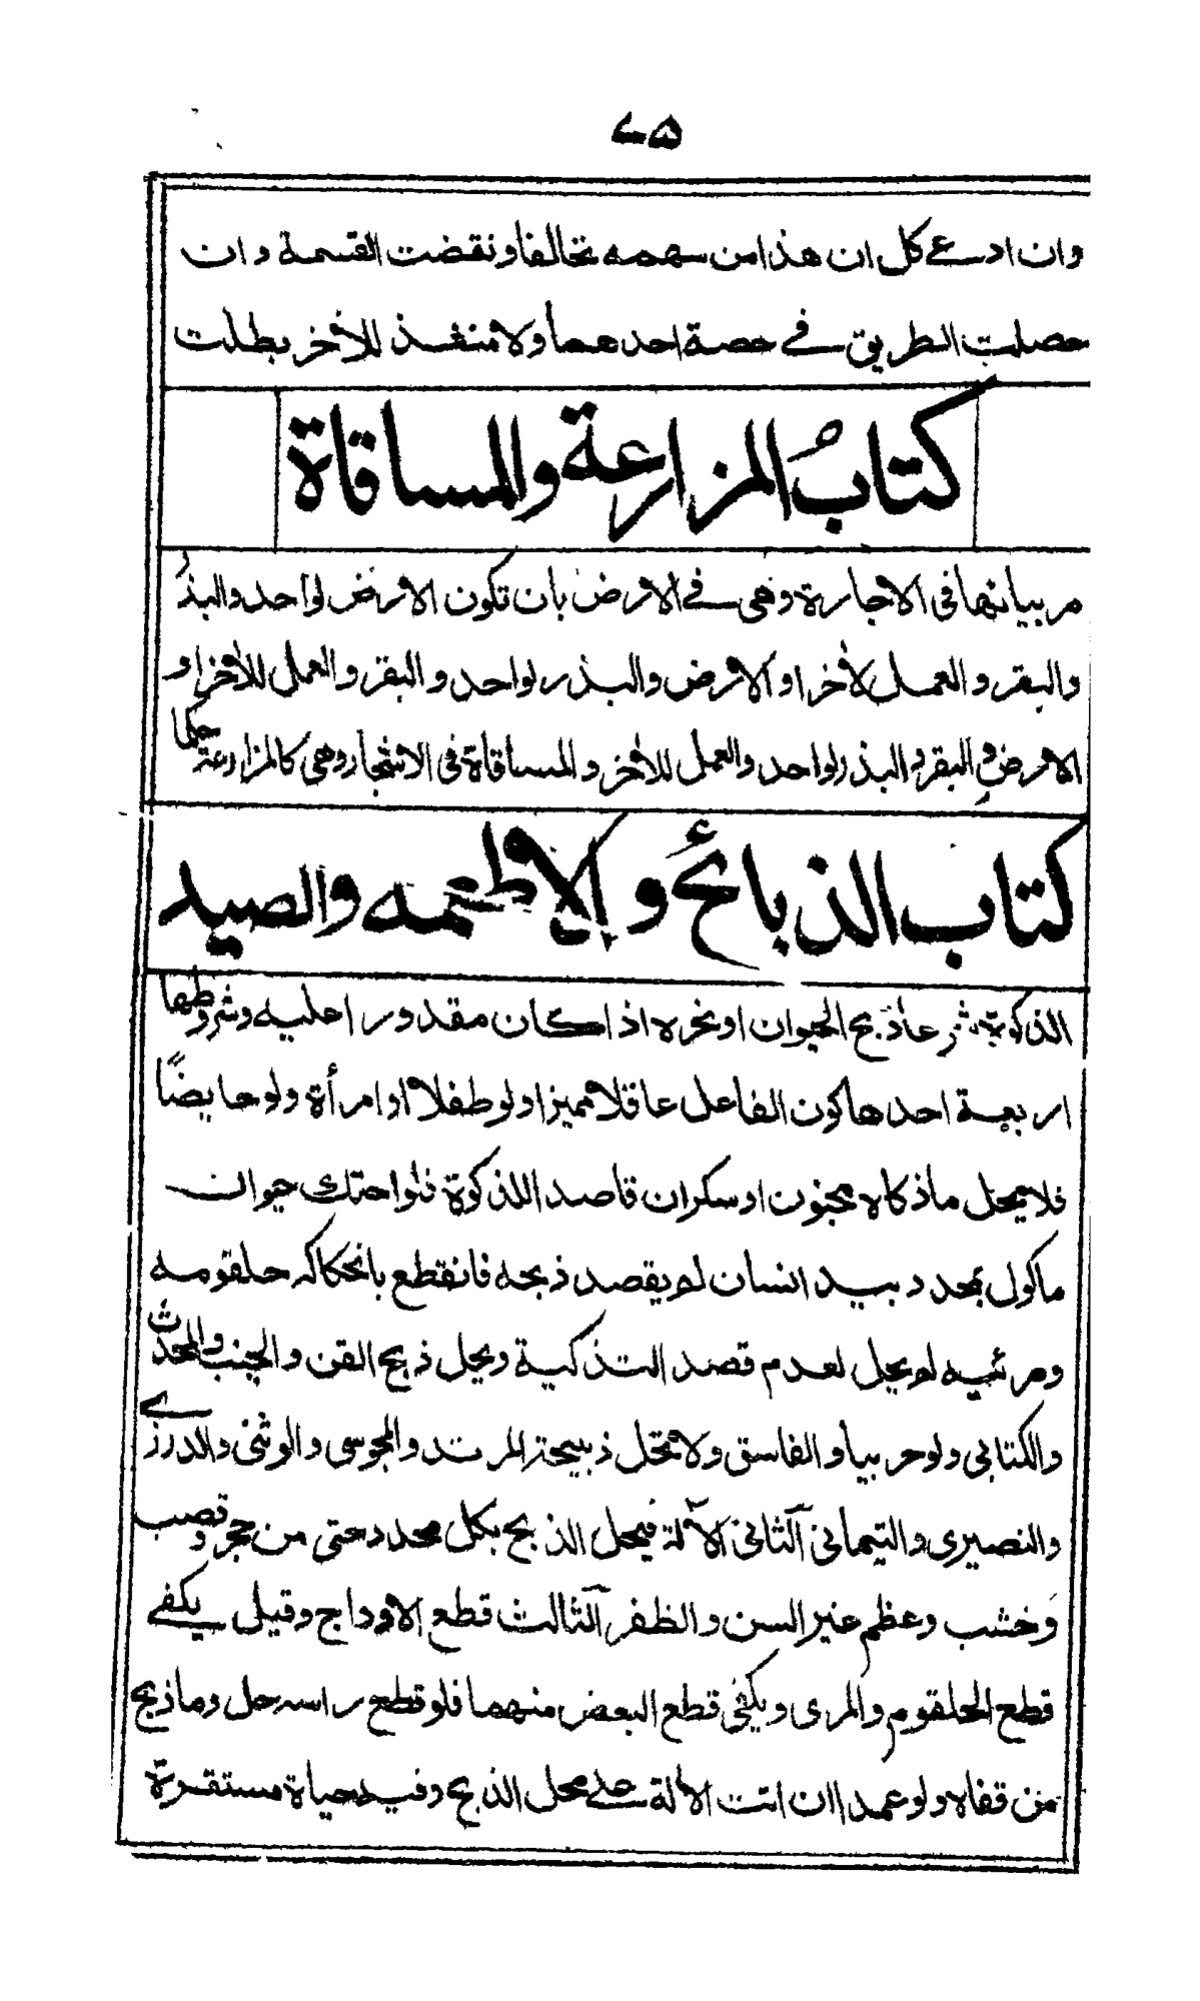 ٧٥
وان ادعے كل ان هذا من سهمه تحالفا ونقضت القسمة وان
حصلت الطريق فے حصة احدهما ولا منفذ للآخر بطلت
كتابُ المزارعة والمساقاة
مر بيانها فى الاجارة وهى فے الارض بان تكون الارض لواحد والبذرُ
والبقر والعمل لأخر او الارض والبذر لواحد والبقر والعمل للأخر او
الارض والبقر والبذر لواحد والعمل للأخر والمساقاة فى الاشجار وهى كالمزارعة حكما
كتاب الذبائح والاطعمه والصيد
الذكوة شرعا ذبح الحيوان او نحره اذا كان مقدورا عليه وشروطها
اربعة احدها كون الفاعل عاقلا مميزا ولو طفلا او امرأة ولو حايضًا
فلا يحل ماذكاه مجنون او سكران قاصد اللذكوة فلو احتك حيوان
ماكول بمحدد بيد انسان لم يقصد ذبحه فانقطع بانحكاكه حلقومه
ومرئيه لم يحل لعدم قصد التذكية ويحل ذبح القن والجنب والمحدث
والكتابى ولو حربيا والفاسق ولا تحل ذبيحة المرتد والمجوسى والوثنى والدرزے
والنصيرى والتيمانى الثانى الآلة فيحل الذبح بكل محدد حتى من حجر وقصب
وخشب وعظم غير السن والظفر الثالث قطع الاوداج وقيل يكفے
قطع الحلقوم والمرى ويكفى قطع البعض منهما فلو قطع راسه حل وما ذبح
من قفاه ولو عمدا ان اتت الآلة علے محل الذبح وفيه حياة مستقرة